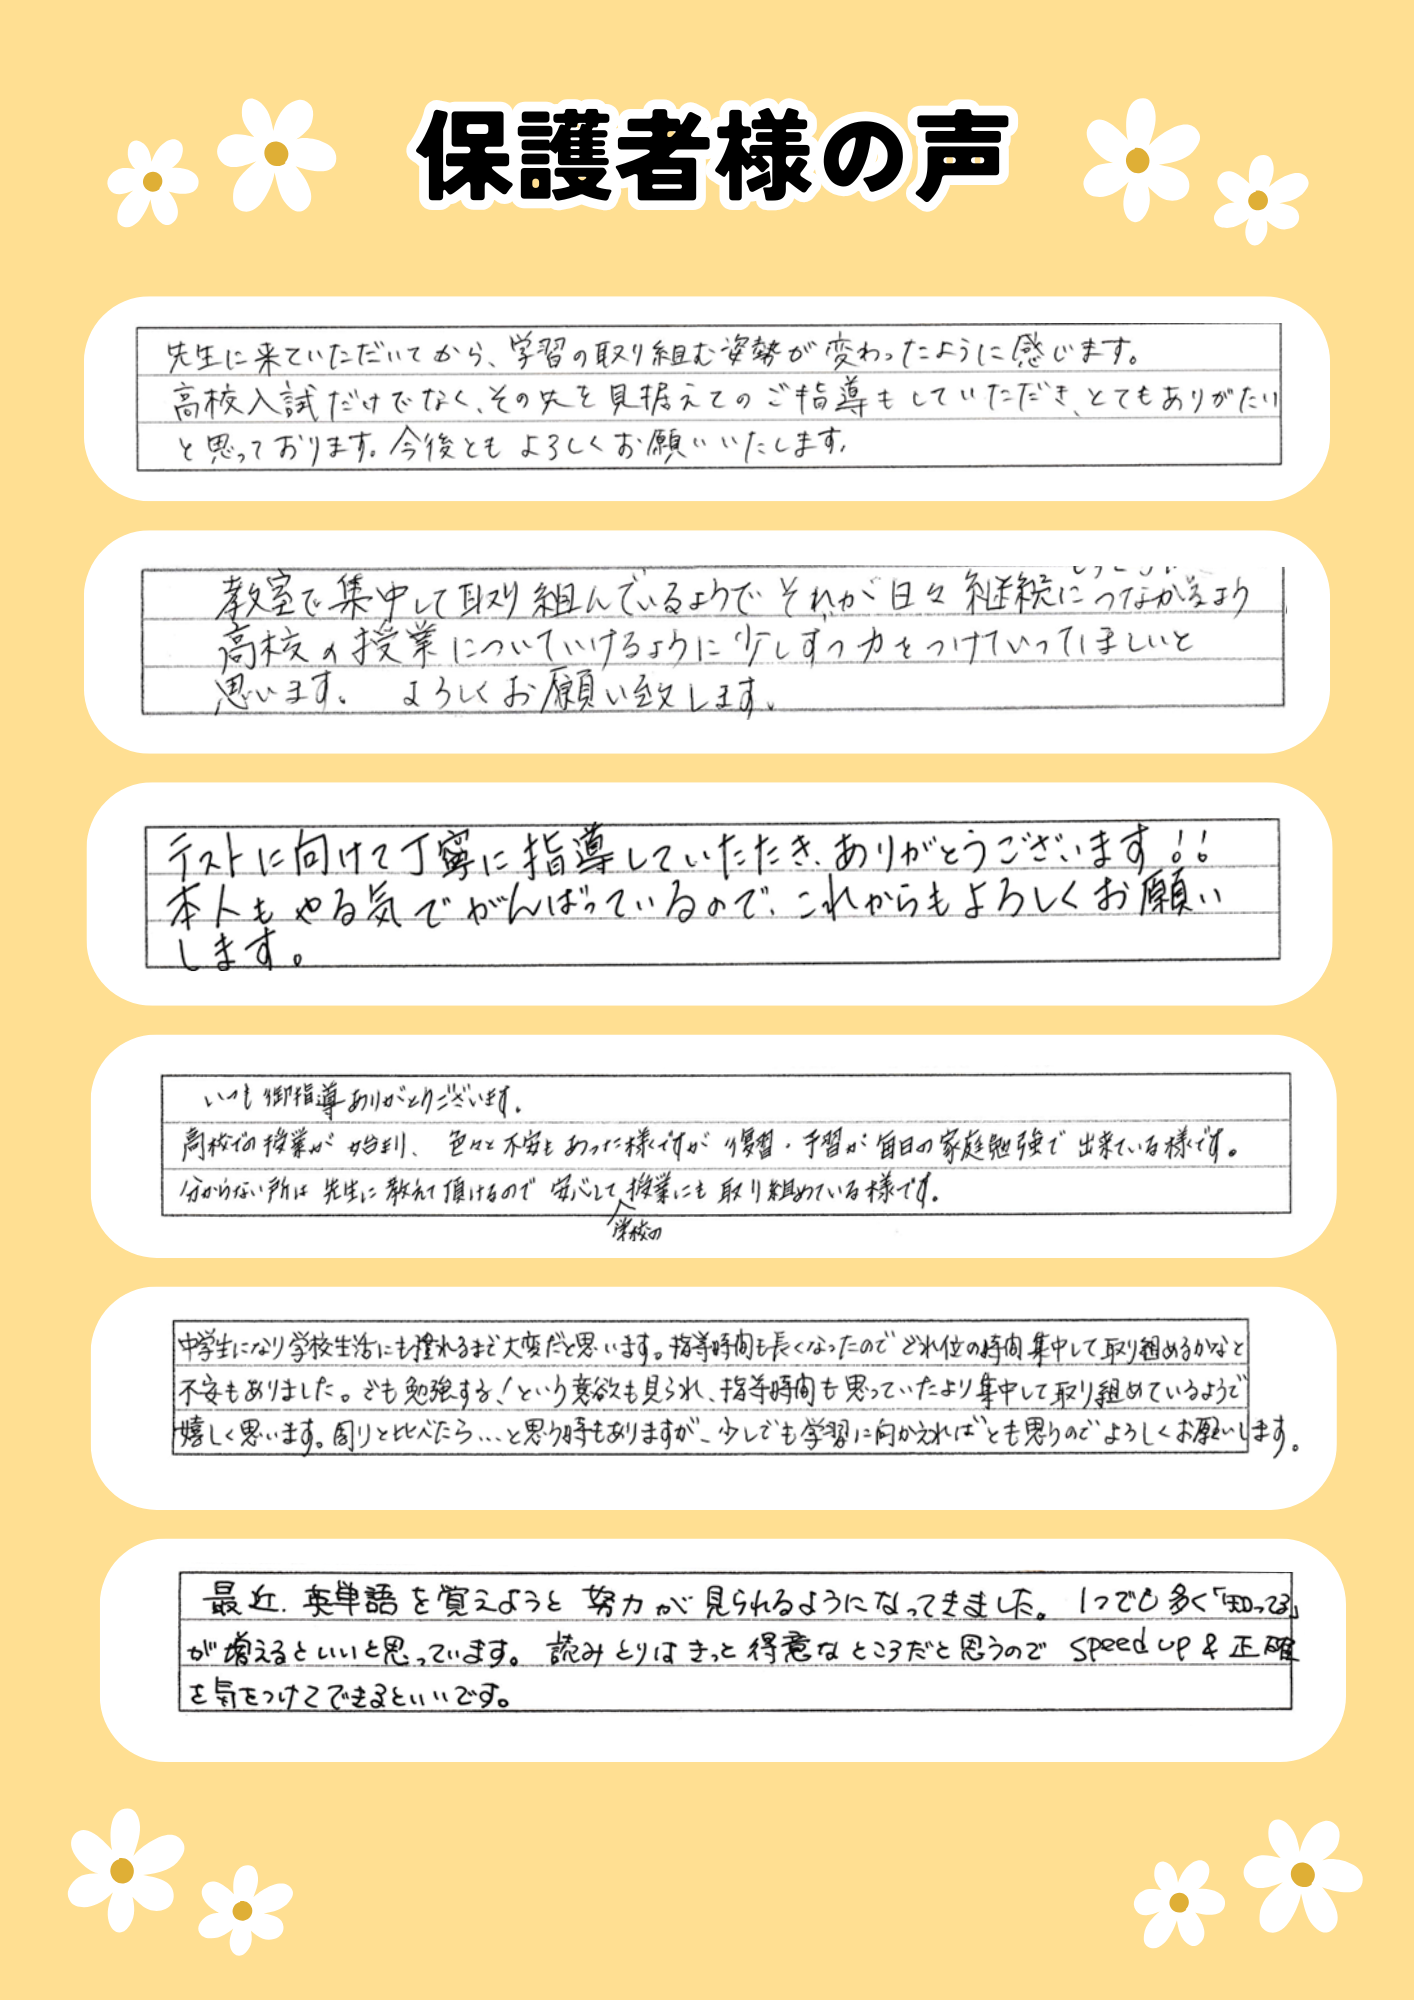 保護者様の声
先生に来ていただいてから、学習の取り組む姿勢が変わったように感じます。
高校入試だけでなく、その先を見据えてのご指導もしていただき、とてもありがたい
と思っております。今後ともよろしくお願いいたします。
教室で集中して取り組んでいるようで それが日々継続につながるよう
高校の授業についていけるように少しずつ力をつけていってほしいと
思います。 よろしくお願い致します。
テストに向けて丁寧に指導していただき、ありがとうございます!!
本人もやる気でがんばっているので、これからもよろしくお願い
します。
いつも御指導ありがとうございます。
高校での授業が始まり、色々と不安もあった様ですが 復習・予習が毎日の家庭勉強で出来ている様です。
分からない所は先生に教えて頂けるので安心して授業にも取り組めている様です。
学校の
中学生になり学校生活にも慣れるまで大変だと思います。指導時間も長くなったのでどれ位の時間集中して取り組めるかなと
不安もありました。でも勉強する!という意欲も見られ、指導時間も思っていたより集中して取り組めているようで
嬉しく思います。周りと比べたら…と思う時もありますが、少しでも学習に向かえればとも思うのでよろしくお願いします。
最近、英単語を覚えようと努力が見られるようになってきました。1つでも多く「知ってる」
が増えるといいと思っています。読みとりはきっと得意なところだと思うので speed up & 正確
を気をつけてできるといいです。